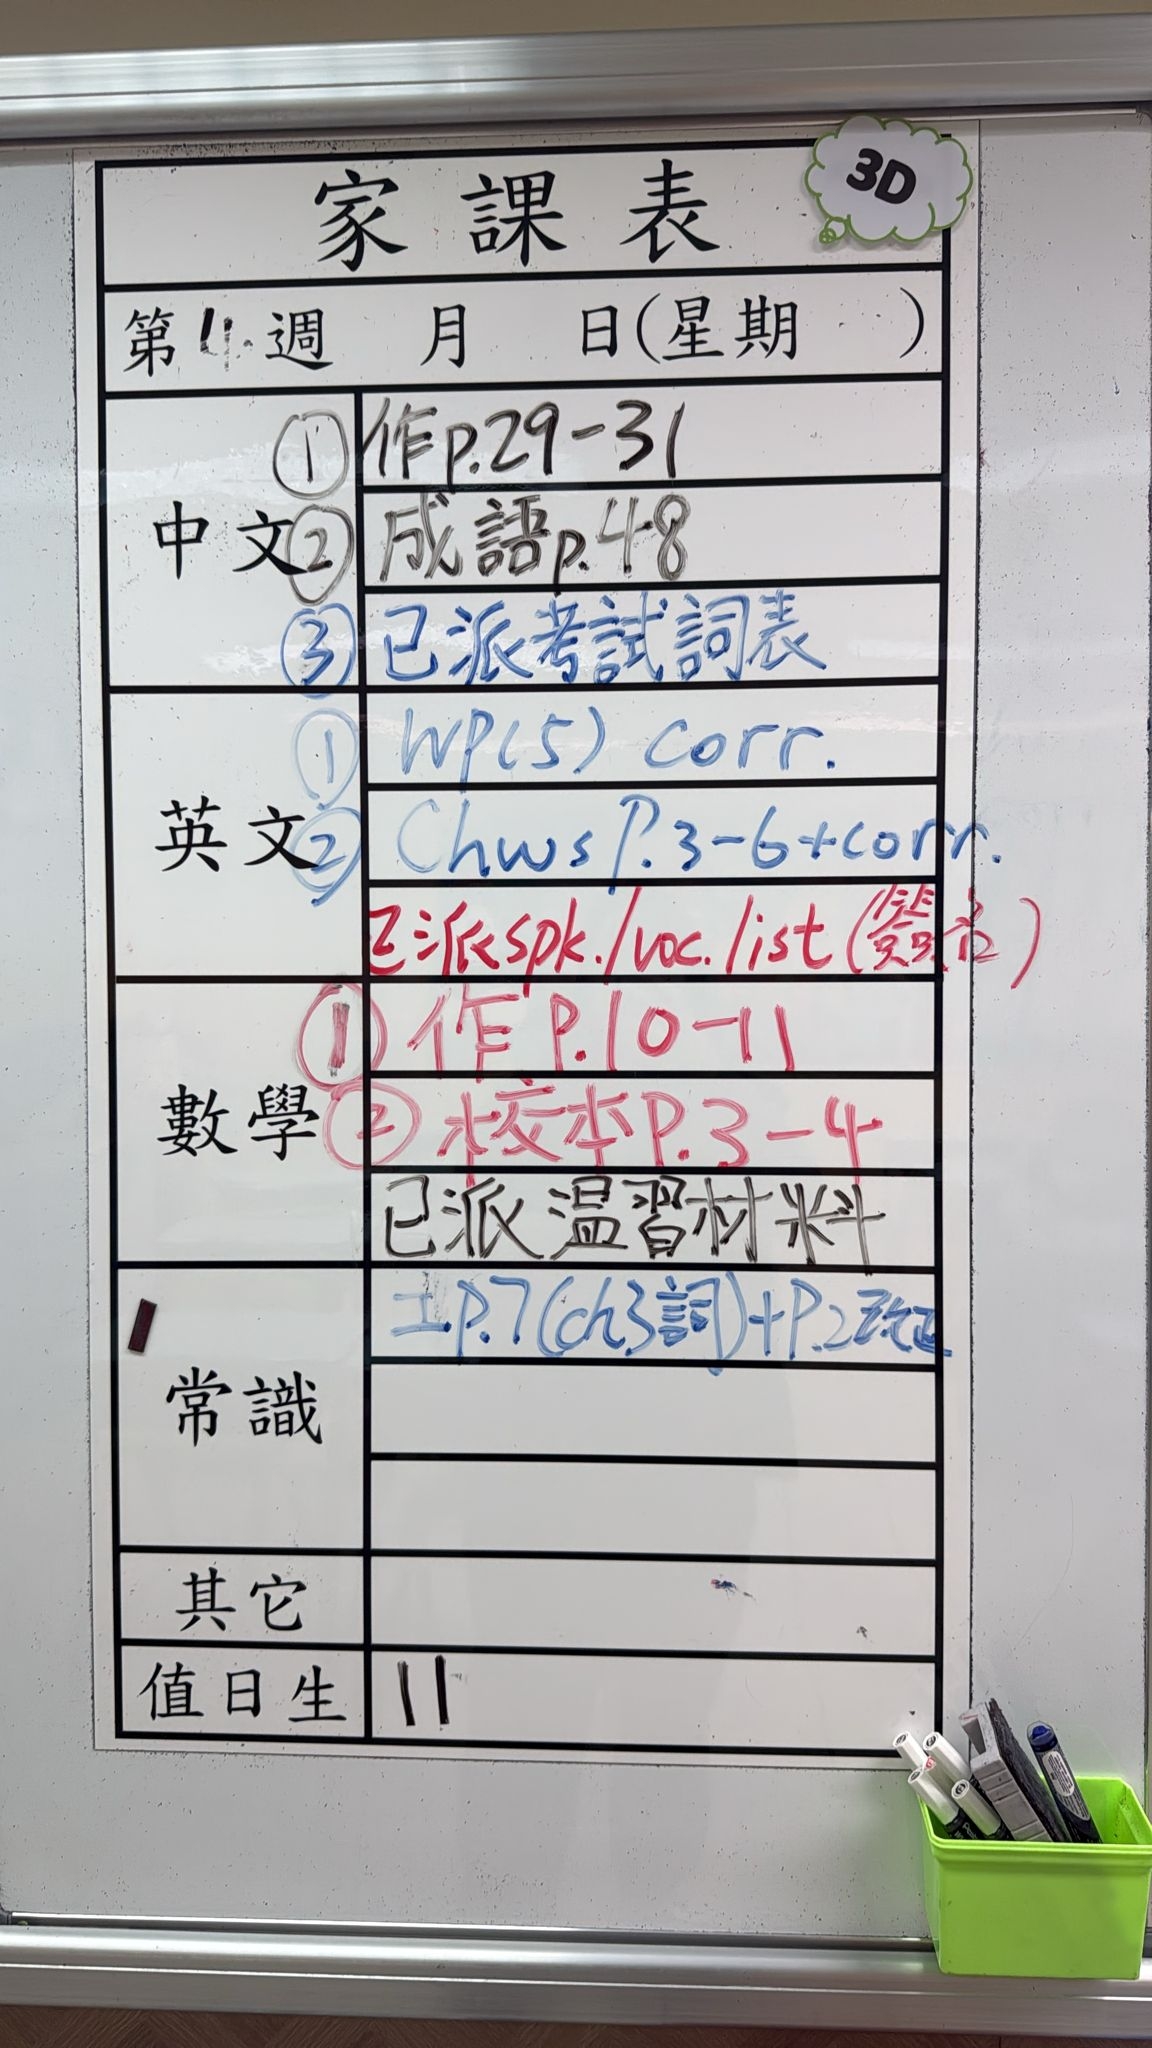 家課表
3D
第4週 月 日(星期 )
中文
① 作p.29-31
② 成語p.48
③ 已派考試詞表
英文
① WP(5) corr.
② Chws P.3-6+corr.
已派spk./voc.list(簽名)
數學
① 作P.10-11
② 校本P.3-4
已派温習材料
常識
工P.7(ch3詞)+P.2改正
其它
值日生
11